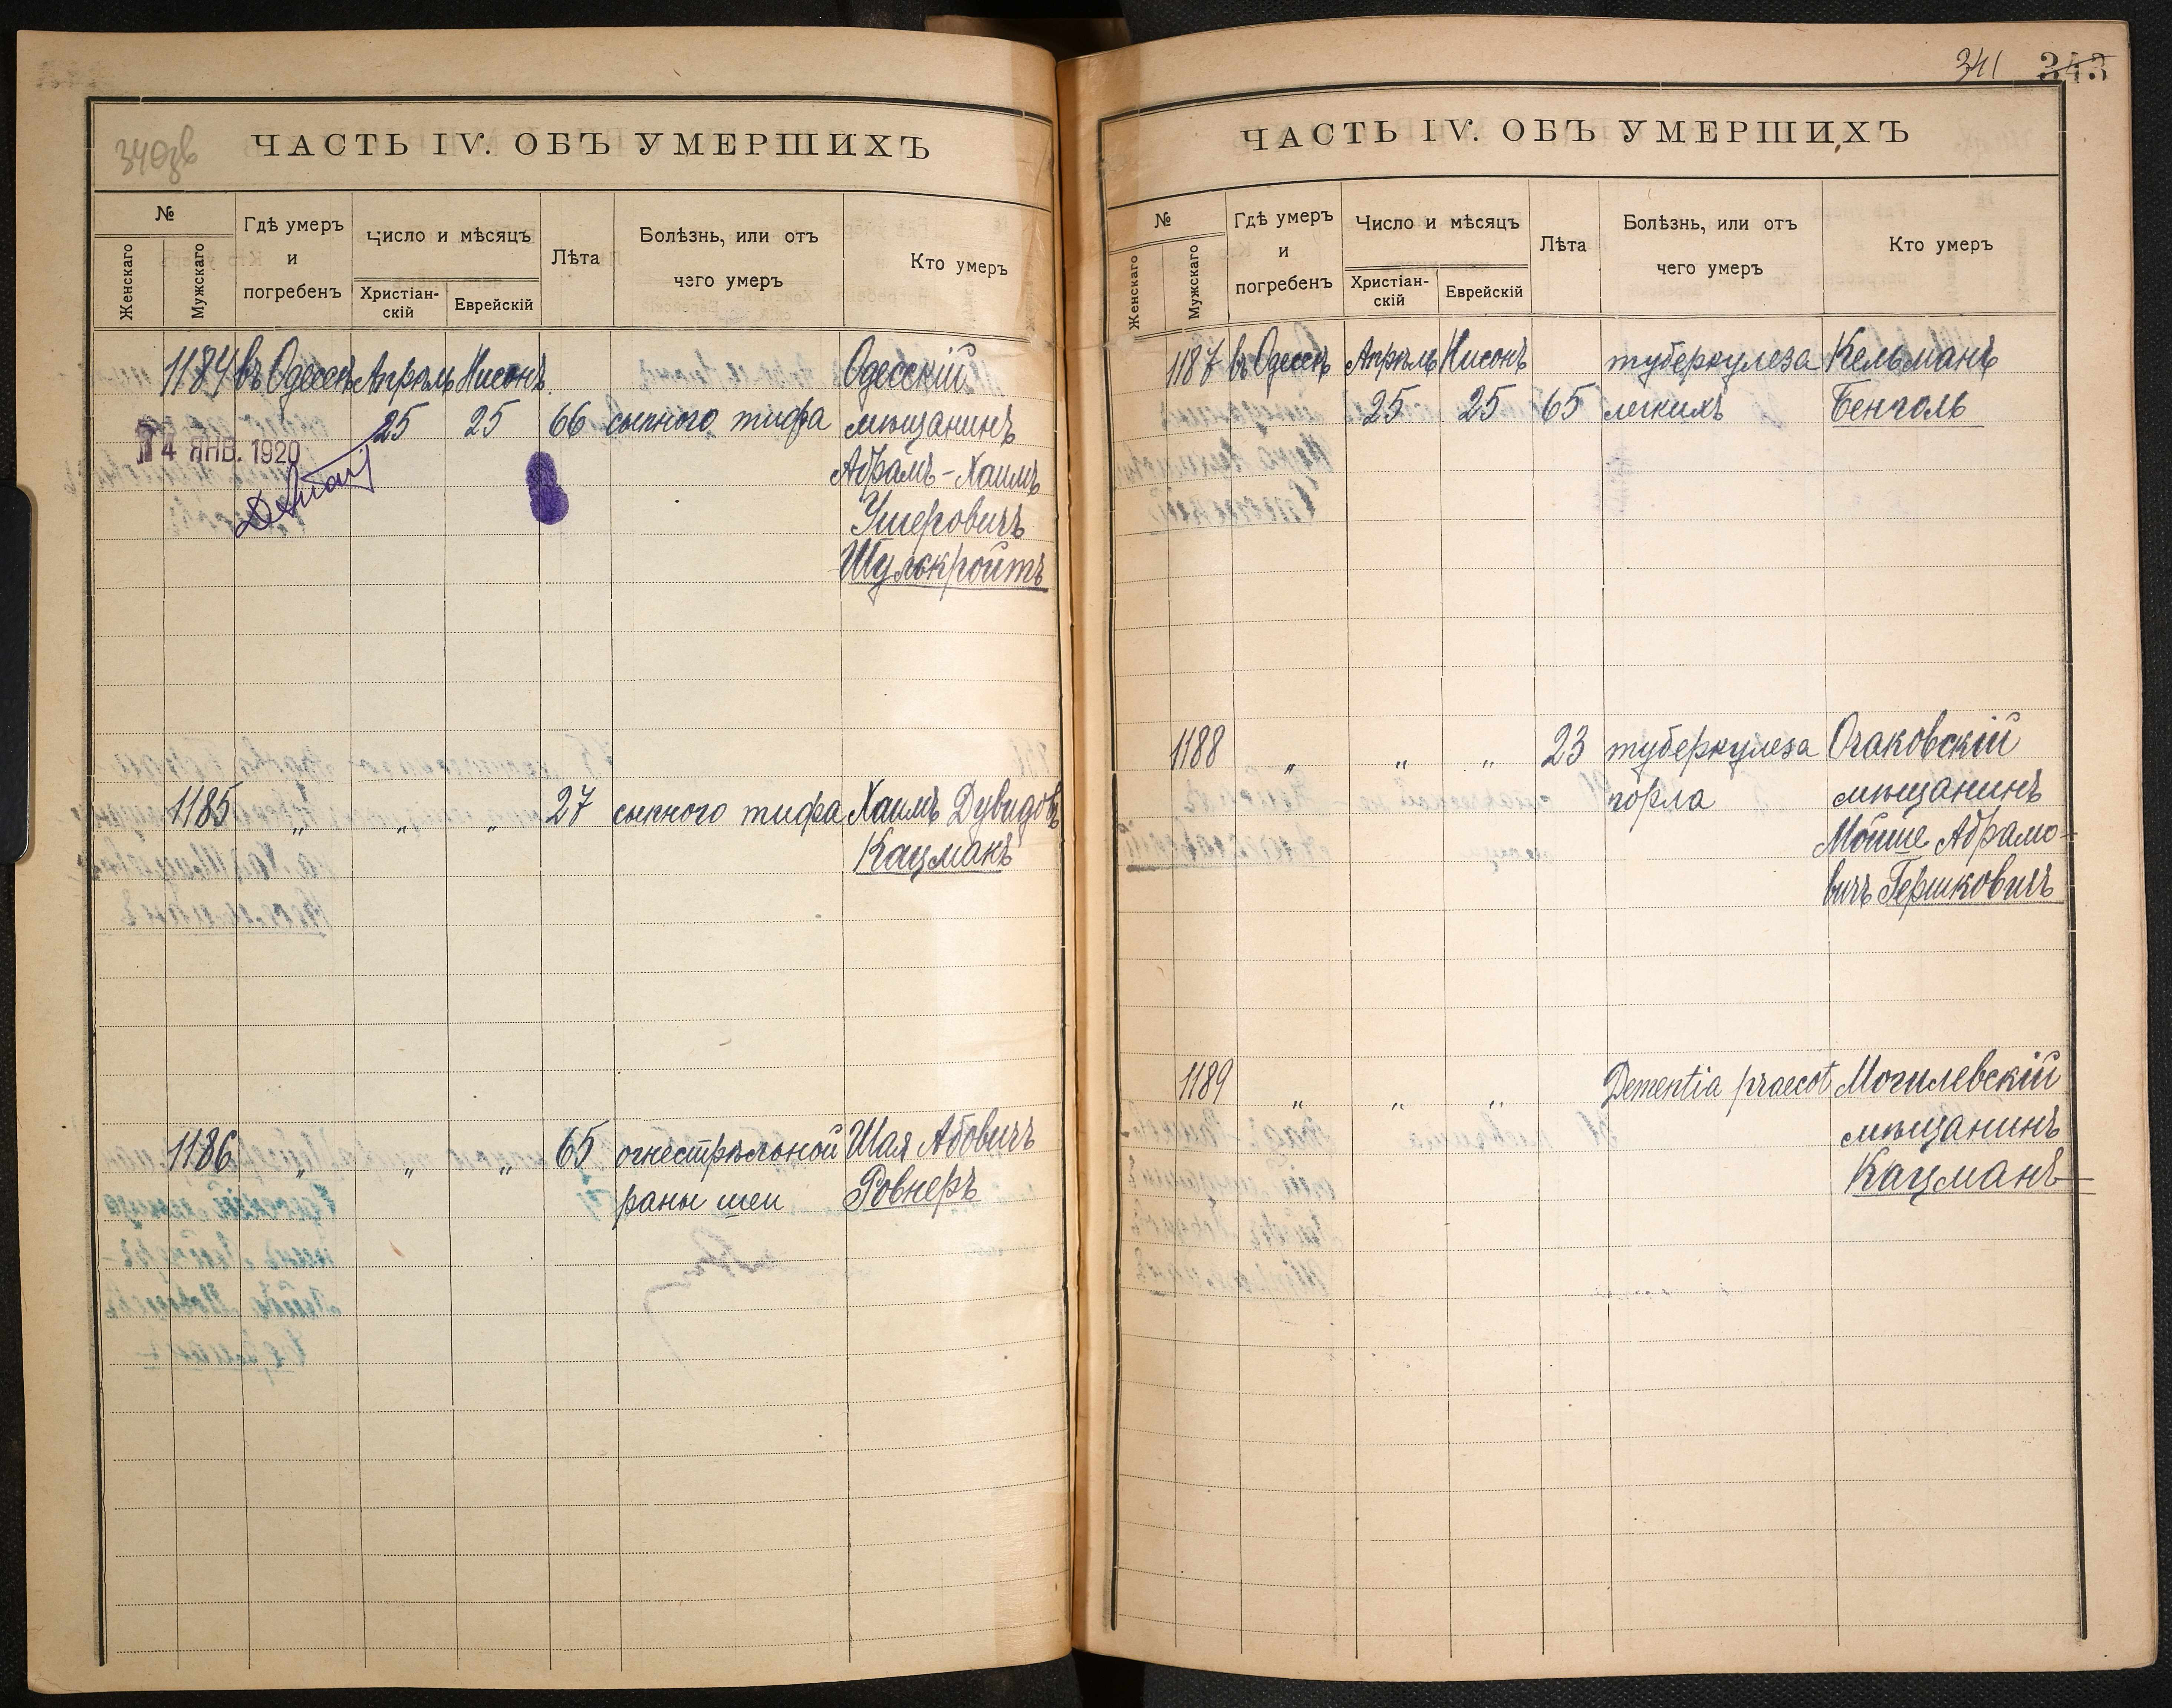 340зв
ЧАСТЬ IV. ОБЪ УМЕРШИХЪ
№
Женскаго
Мужскаго
Гдѣ умеръ
и
погребенъ
Число и мѣсяцъ
Христіан-
скій
Еврейскій
Лѣта
Болѣзнь, или отъ
чего умеръ
Кто умеръ
1184 въ Одессѣ Апрѣль Нисонъ Одесскій
25 25 66 сыпного тифа мѣщанинъ
14 ЯНВ. 1920
Абрамъ-Хаимъ
Ушеровичъ
Шулькройтъ
1185 " " " 27 сыпного тифа Хаимъ Дувидовъ
Кацманъ
1186 " " " 65 огнестрѣльной Шая Абовичъ
раны шеи Ровнеръ
341 343
ЧАСТЬ IV. ОБЪ УМЕРШИХЪ
№
Женскаго
Мужскаго
Гдѣ умеръ
и
погребенъ
Число и мѣсяцъ
Христіан-
скій
Еврейскій
Лѣта
Болѣзнь, или отъ
чего умеръ
Кто умеръ
1187 въ Одессѣ Апрѣль Нисонъ туберкулеза Кельманъ
25 25 65 легкихъ Бенголь
1188 " " " 23 туберкулеза Очаковскій
горла мѣщанинъ
Мойше Абрамо-
вичъ Гершковичъ
1189 " " " Dementia praecot Могилевскій
мѣщанинъ
Кацманъ